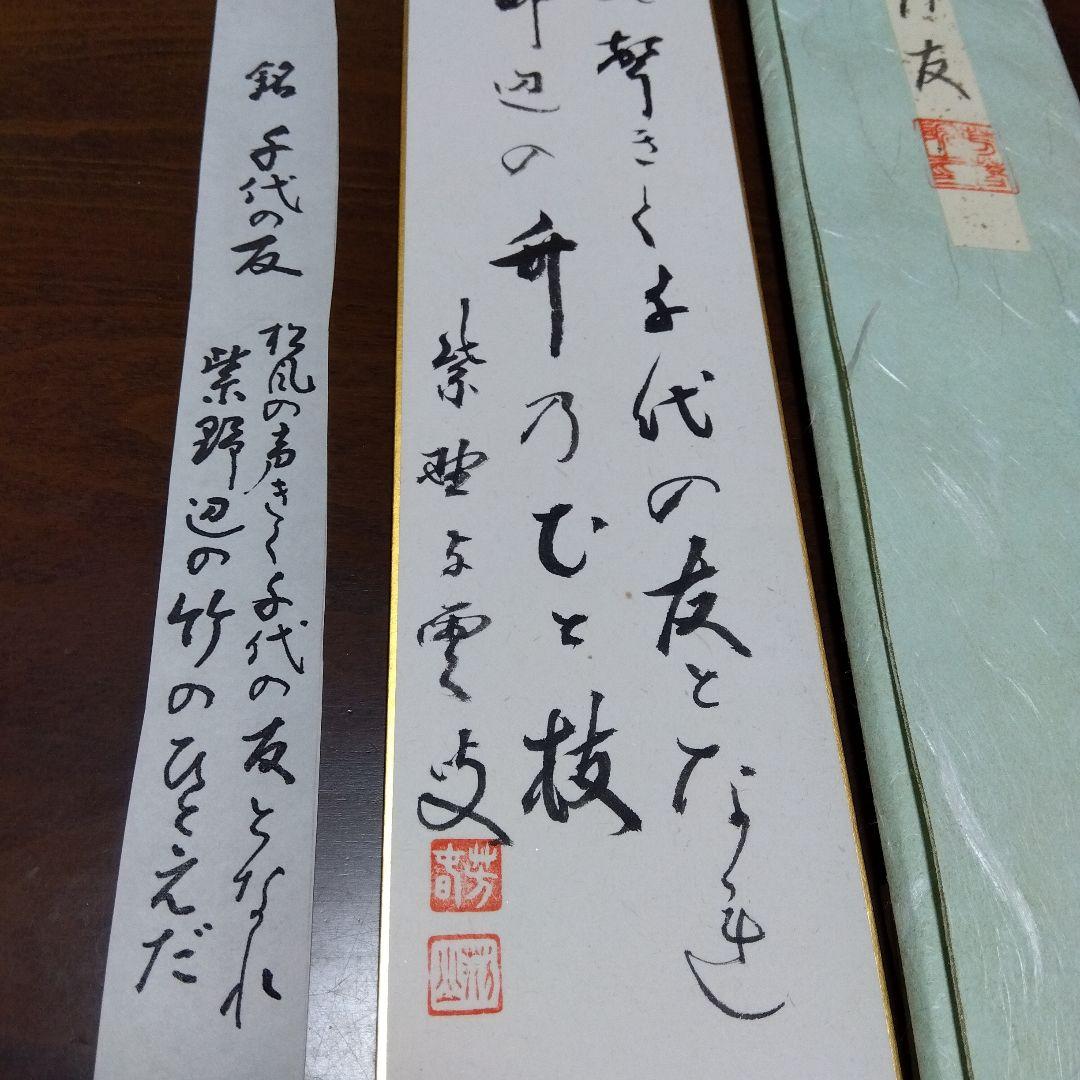 銘 千代の友
松風の声きく千代の友となれ
紫野辺の竹のひとえだ
聲きく千代の友となれ
野辺の竹乃ひと枝
紫野
友
芳春